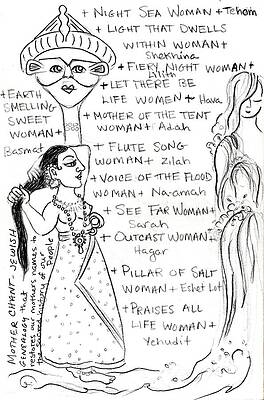 + NIGHT SEA WOMAN + Tehom
+ LIGHT THAT DWELLS
WITHIN WOMAN +
Shekhina
+ FIERY NIGHT WOMAN +
Lilith
+ LET THERE BE
LIFE WOMEN + Hava
+ MOTHER OF THE TENT
WOMAN + Adah
+ FLUTE SONG
WOMAN + Zilah
+ VOICE OF THE FLOOD
WOMAN + Na-amah
+ SEE FAR WOMAN +
Sarah
+ OUTCAST WOMAN +
Hagar
+ PILLAR OF SALT
WOMAN + Eshet Lot
+ PRAISES ALL
LIFE WOMAN +
Yehudit
+ EARTH
SMELLING
SWEET
WOMAN +
Basmat
MOTHER CHANT - JEWISH
GENEALOGY THAT
restores our mothers names to
the sacred history of our
People